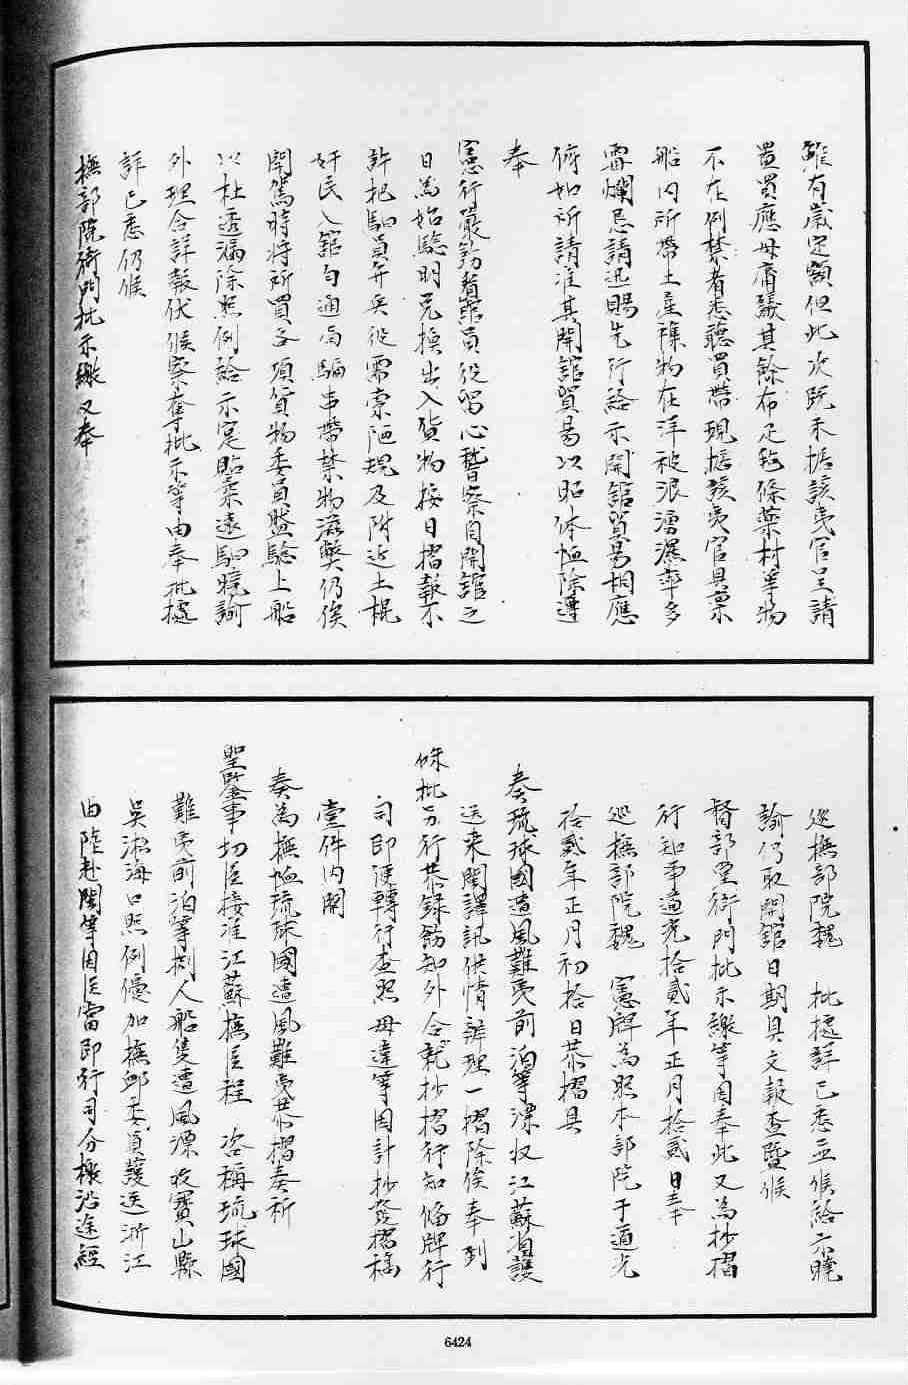 雖有歲定額但此次既未據該夷官呈請
置買應毋庸議其餘布疋毡條藥材等物
不在例禁者悉聽買帶現據該夷官具稟
船內所帶土產襍物在洋被浪湧濕率多
霉爛忌請迅賜先行給示開舘貿易相應
俯如所請准其開舘貿易以昭体恤除遵
奉
憲行嚴飭着舘員役留心稽察自開舘之
日為始驗明兌換出入貨物按日摺報不
許把駟員弁兵役需索陋規及附近土棍
奸民入舘勾通局騙串帶禁物滋弊仍俟
開駕時將所買各項貨物委員盤驗上船
以杜透漏除照例給示寔貼柔遠駟曉諭
外理合詳報伏候察奪批示等由奉批據
詳已悉仍候
撫部院衙門批示繳又奉
巡撫部院魏　批據詳已悉立候給示曉
諭仍取開舘日期具文報查暨候
督部堂衙門批示繳等因奉此又為抄摺
行知事道光拾貳年正月拾貳日奉
巡撫部院魏　憲牌為照本部院于道光
拾貳年正月初拾日恭摺具
奏琉球國遭風難夷前泊等漂收江蘇省護
送來閩譯訊供情辦理一摺除俟奉到
硃批另行恭錄飭知外合就抄摺行知偹牌行
司即便轉行查照毋違等因計抄發摺稿
壹件內開
奏為撫恤琉球國遭風難夷恭摺奏祈
聖鑒事切臣接准江蘇撫臣程　咨稱琉球國
難夷前泊等捌人船隻遭風漂收寶山縣
吳淞海口照例優加撫卹委員護送浙江
由陸赴閩等因臣當即行司分檄沿途經
6424